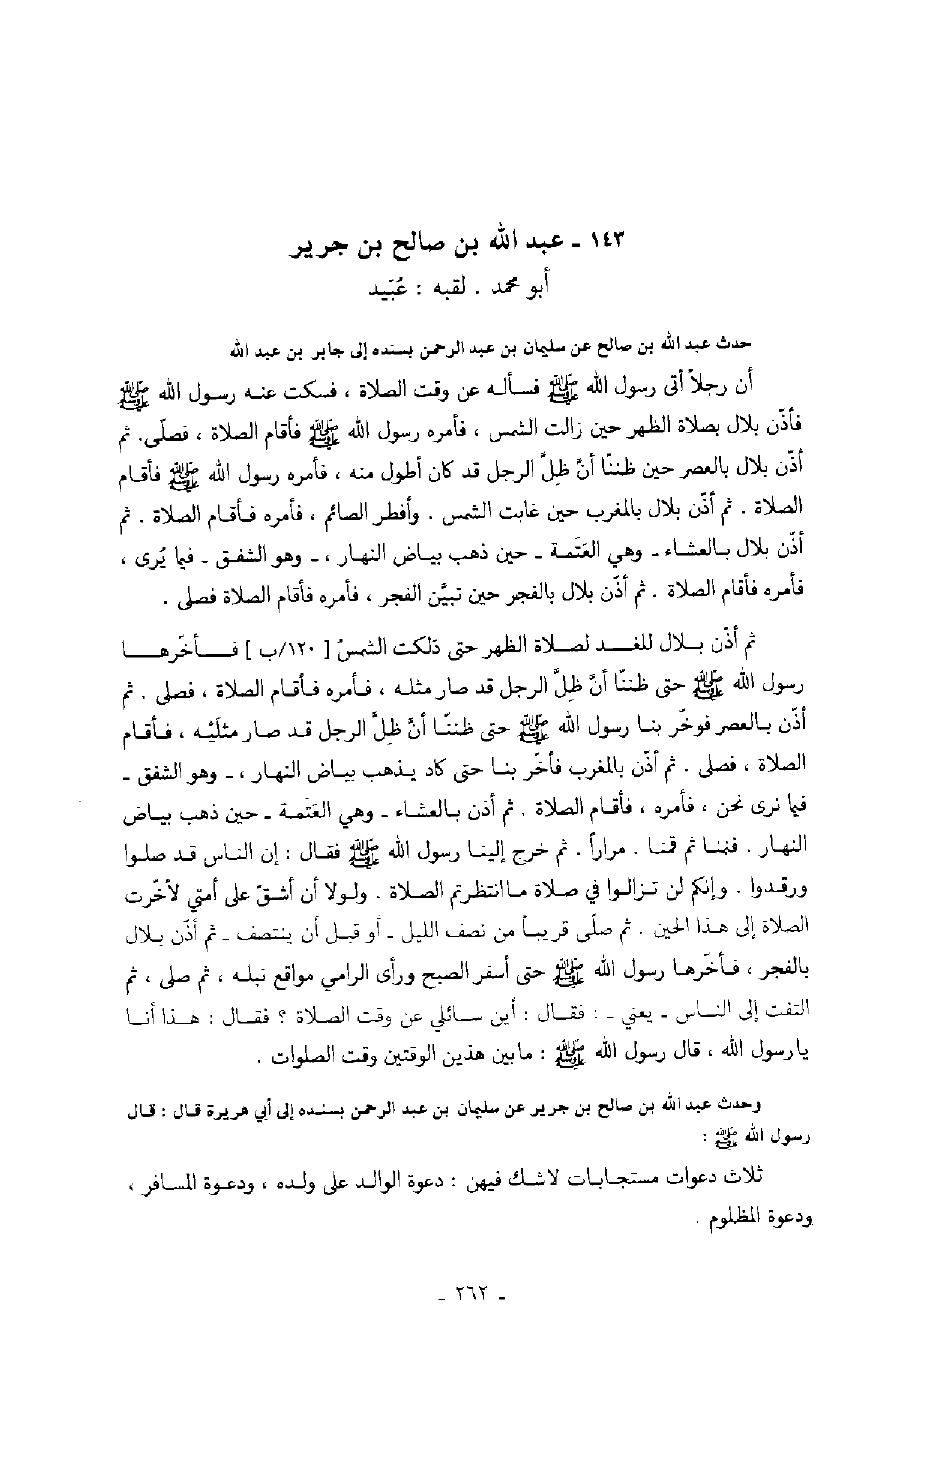 ١٤٣ - عبد الله بن صالح بن جرير
أبو محمد . لقبه : عُبَيد
حدث عبد الله بن صالح عن سليمان بن عبد الرحمن بسنده إلى جابر بن عبد الله
أن رجلاً أتى رسول الله ﷺ فسأله عن وقت الصلاة ، فسكت عنه رسول الله ﷺ
فأذّن بلال بصلاة الظهر حين زالت الشمس ، فأمره رسول الله ﷺ فأقام الصلاة ، فصلّى. ثم
أذّن بلال بالعصر حين ظننّا أنَّ ظِلَّ الرجل قد كان أطول منه ، فأمره رسول الله ﷺ فأقام
الصلاة . ثم أذّن بلال بالمغرب حين غابت الشمس . وأفطر الصائم ، فأمره فأقام الصلاة . ثم
أذّن بلال بالعشاء - وهي العَتَمة - حين ذهب بياض النهار ، - وهو الشفق - فيما يُرى ،
فأمره فأقام الصلاة . ثم أذّن بلال بالفجر حين تبيَّن الفجر ، فأمره فأقام الصلاة فصلى .
ثم أذّن بلال للغد لصلاة الظهر حتى دَلكت الشمسُ [ ١٢٠/ب ] فأخّرها
رسول الله ﷺ حتى ظننّا أنَّ ظِلَّ الرجل قد صار مثله ، فأمره فأقام الصلاة ، فصلى . ثم
أذّن بالعصر فوخّر بنا رسول الله ﷺ حتى ظننّا أنَّ ظِلَّ الرجل قد صار مثلَيْه ، فأقام
الصلاة ، فصلى . ثم أذّن بالمغرب فأخّر بنا حتى كاد يذهب بياض النهار ، - وهو الشفق -
فيما نرى نحن ، فأمره ، فأقام الصلاة . ثم أذن بالعشاء - وهي العَتَمة - حين ذهب بياض
النهار . فنمنا ثم قمنا . مراراً . ثم خرج إلينا رسول الله ﷺ فقال : إن الناس قد صلوا
ورقدوا . وإنكم لن تزالوا في صلاة ما انتظرتم الصلاة . ولولا أن أشقّ على أمتي لأخّرت
الصلاة إلى هذا الحين . ثم صلّى قريباً من نصف الليل - أو قبل أن ينتصف - ثم أذّن بلال
بالفجر ، فأخّرها رسول الله ﷺ حتى أسفر الصبح ورأى الرامي مواقع نبله ، ثم صلى ، ثم
التفت إلى الناس - يعني - : فقال : أين سائلي عن وقت الصلاة ؟ فقال : هذا أنا
يا رسول الله ، قال رسول الله ﷺ : مابين هذين الوقتين وقت الصلوات .
وحدث عبد الله بن صالح بن جرير عن سليمان بن عبد الرحمن بسنده إلى أبي هريرة قال : قال
رسول الله ﷺ :
ثلاث دعوات مستجابات لاشك فيهن : دعوة الوالد على ولده ، ودعوة المسافر ،
ودعوة المظلوم .
- ٢٦٢ -